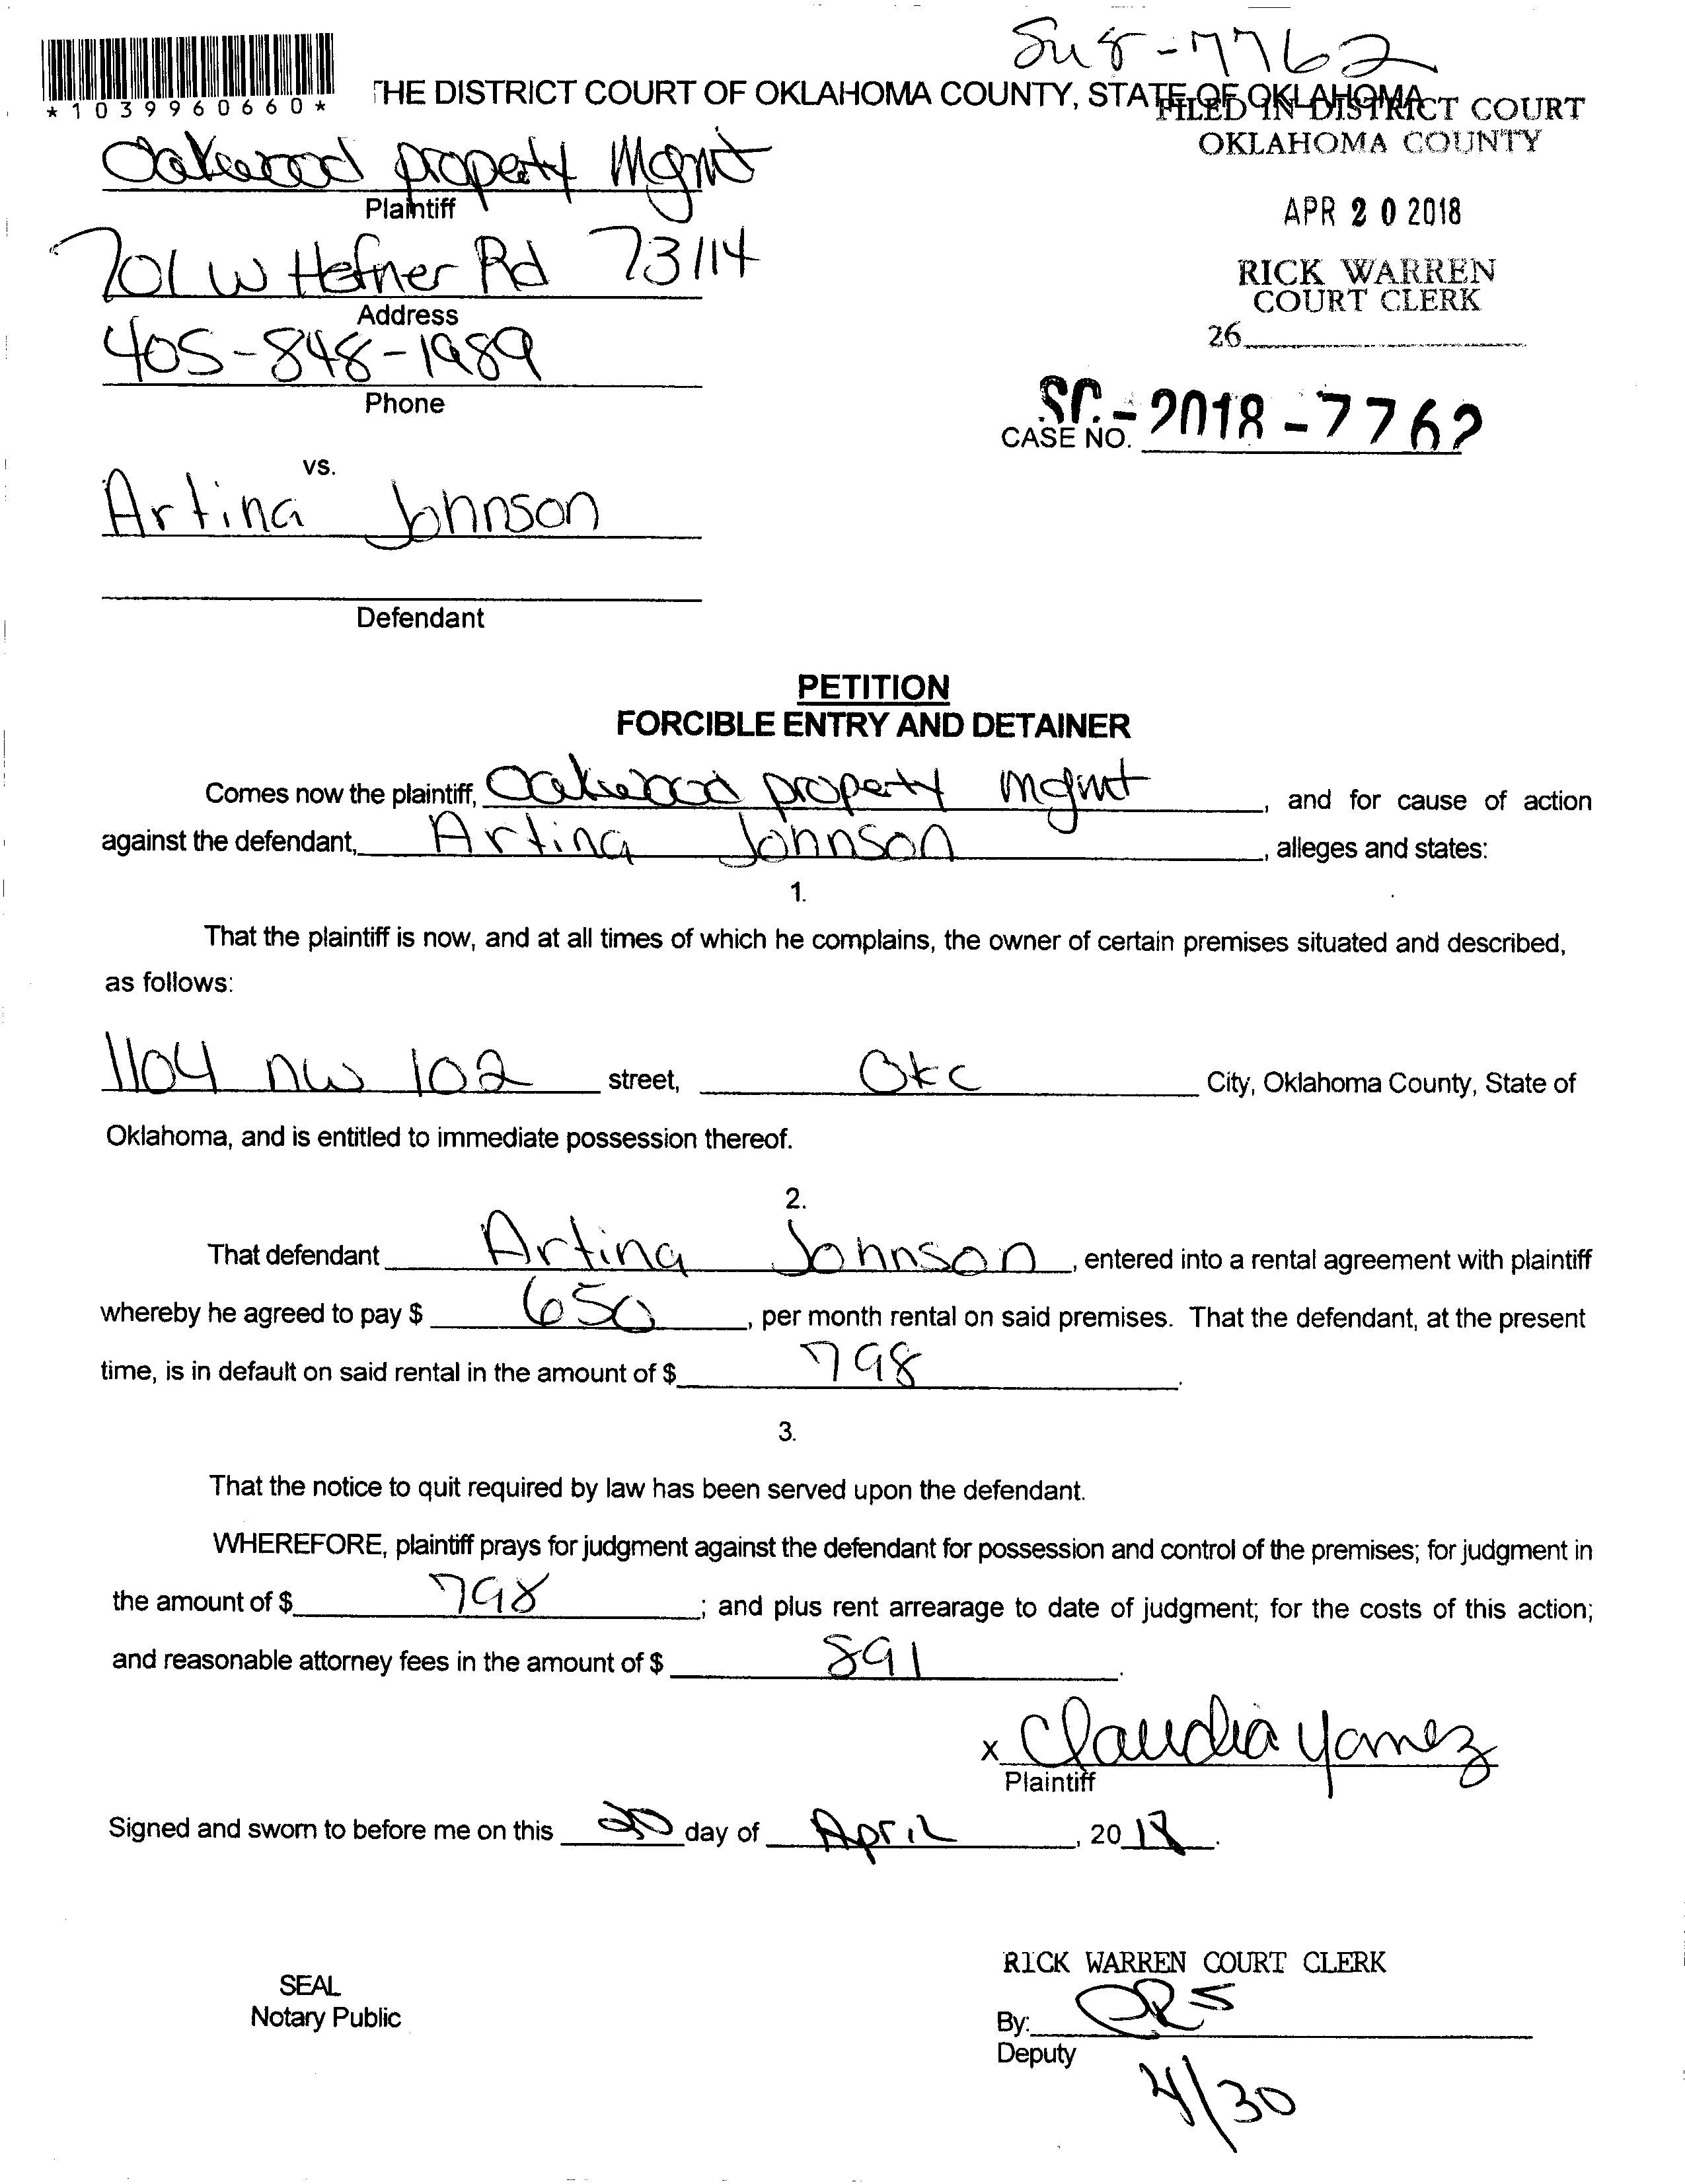 Su 8-7762
*1039960660*
THE DISTRICT COURT OF OKLAHOMA COUNTY, STATE OF OKLAHOMA
FILED IN DISTRICT COURT
OKLAHOMA COUNTY
Oakwood property Mgmt
Plaintiff
APR 20 2018
701 W Hefner Rd 73114
Address
RICK WARREN
COURT CLERK
26
405-848-1989
Phone
SC-2018-7762
CASE NO.
vs.
Artina Johnson
Defendant
PETITION
FORCIBLE ENTRY AND DETAINER
Comes now the plaintiff, Oakwood property mgmt, and for cause of action
against the defendant, Artina Johnson, alleges and states:
1.
That the plaintiff is now, and at all times of which he complains, the owner of certain premises situated and described,
as follows:
1104 NW 102 street, OKC City, Oklahoma County, State of
Oklahoma, and is entitled to immediate possession thereof.
2.
That defendant Artina Johnson, entered into a rental agreement with plaintiff
whereby he agreed to pay $ 650, per month rental on said premises. That the defendant, at the present
time, is in default on said rental in the amount of $ 798.
3.
That the notice to quit required by law has been served upon the defendant.
WHEREFORE, plaintiff prays for judgment against the defendant for possession and control of the premises; for judgment in
the amount of $ 798; and plus rent arrearage to date of judgment; for the costs of this action;
and reasonable attorney fees in the amount of $ 891.
x Claudia Yanez
Plaintiff
Signed and sworn to before me on this 20 day of April, 2018.
RICK WARREN COURT CLERK
SEAL
Notary Public
By:
Deputy
4/30